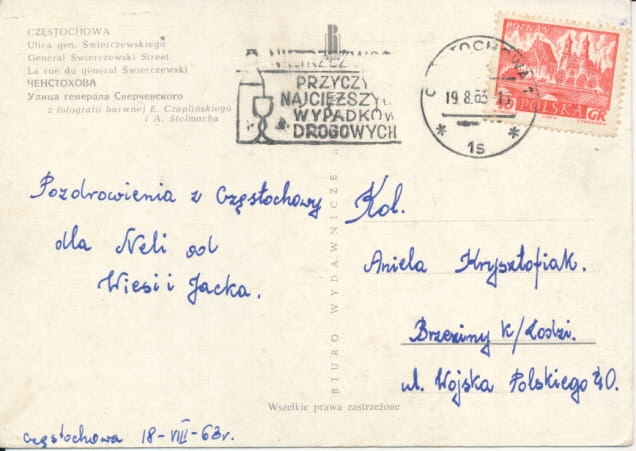 CZĘSTOCHOWA
Ulica gen. Świerczewskiego
General Świerczewski Street
La rue du général Świerczewski
ЧЕНСТОХОВА
Улица генерала Сверчевского
z fotografii barwnej E. Czaplińskiego
i A. Stelmacha
PRZYCZY
NAJCIĘŻSZYC
WYPADKÓW
DROGOWYCH
19.8.63
1s
POZNAŃ
POLSKA
GR
Pozdrowienia z Częstochowy
dla Neli od
Wiesi i Jacka.
Kol.
Aniela Krysztofiak.
Brzeziny k/Łodzi.
ul. Wojska Polskiego 40.
BIURO WYDAWNICZE
Wszelkie prawa zastrzeżone
Częstochowa 18-VIII-63r.